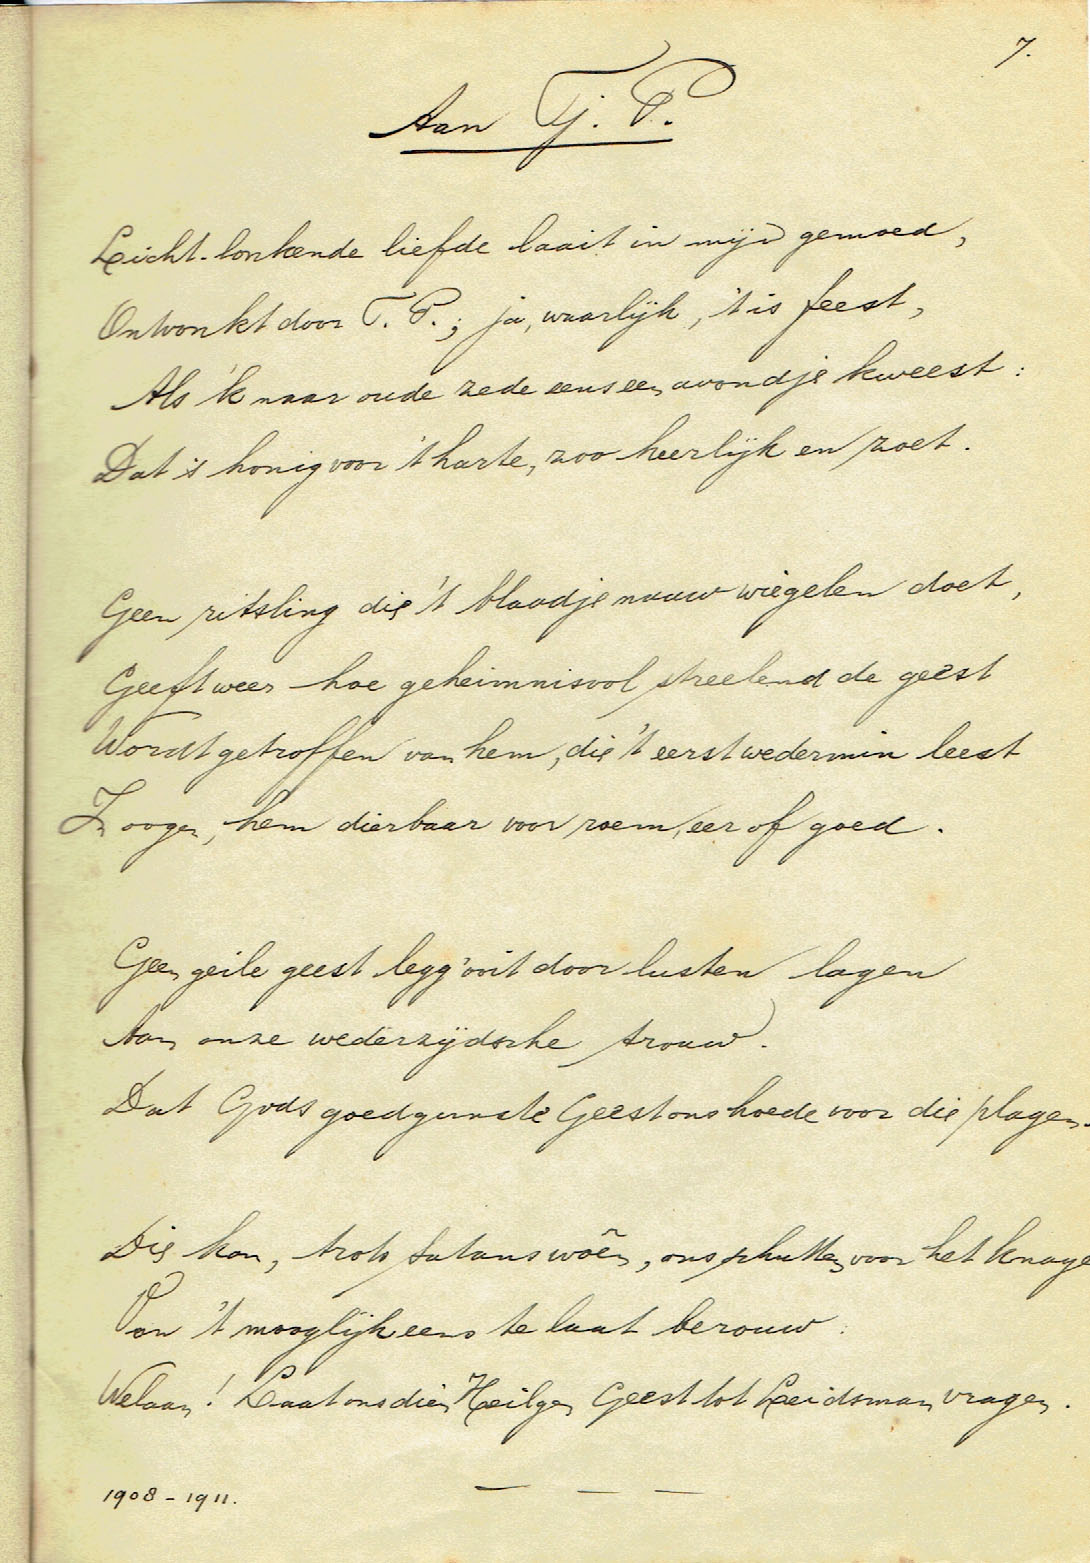 7.
Aan Tj. P.
Licht-lonkende liefde laait in mijn gemoed,
Ontvonkt door T. P.; ja, waarlijk, 't is feest,
Als 'k naar oude zede eens een avondje kweest:
Dat is honig voor 't harte, zoo heerlijk en zoet.
Geen ritsling die 't blaadje nauw wiegelen doet,
Geeft weer hoe geheimnisvol streelend de geest
Wordt getroffen van hem, die 't eerst wedermin leest
In oogen, hem dierbaar voor roem, eer of goed.
Geen geile geest legg' ooit door lusten lagen
Aan onze wederzijdsche trouw.
Dat Gods goedgunste Geest ons hoede voor die plagen.
Die kan, trots satans woên, ons schutten voor het knage
Van 't mooglijk eens te laat berouw:
Welaan! Laat ons dien Heilgen Geest tot Leidsman vragen.
1908 - 1911.